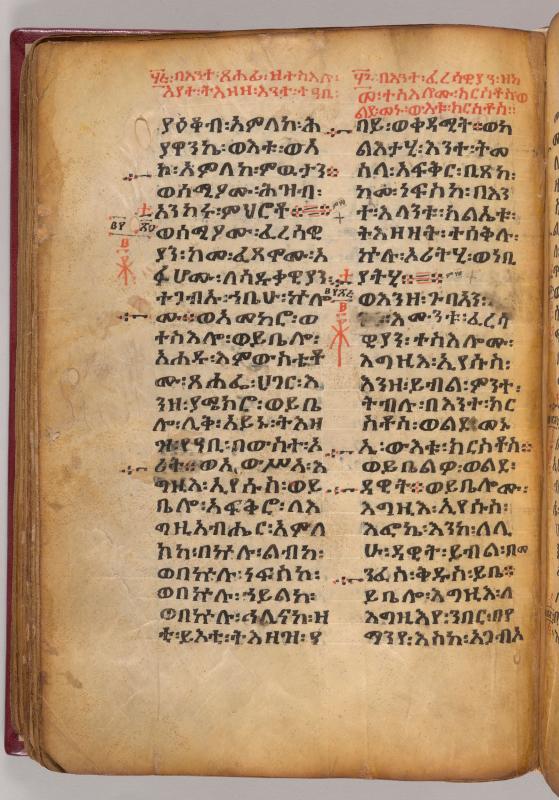 በእንተ፡ጸሐፊ፡ዘተስእሎ፡
እየት፡ትእዛዝ፡እንተ፡ተዓቢ፡
ያዕቆብ፡አምላከ፡ሕ
ያዋን፡ወእቱ፡ወአ
ኮ፡አምላከ፡ምዉታን።
ወሰሚዖሙ፡ሕዝብ፡
አንከሩ፡ምህሮቶ።
ወሰሚዖሙ፡ፈረሳዊ
ያን፡ከመ፡ፈጸሞሙ፡አ
ፉሆሙ፡ለሰዱቃዊያን፡
ተጋብኡ፡ኀቤሁ፡ኵሎ
ሙ።ወአመከሮ፡ወ
ተስእሎ፡ወይቤሎ፡
አሐዱ፡እምውስቴቶ
ሙ፡ጸሐፌ፡ሀገር፡እ
ንዘ፡ያሜክሮ፡ወይቤ
ሎ፡ሊቅ፡አይኑ፡ትእዛ
ዝ፡የዓቢ፡በውስተ፡ኦ
ሪት።ወአውሥአ፡እ
ግዚእ፡ኢየሱስ፡ወይ
ቤሎ፡አፍቅሮ፡ለእ
ግዚአብሔር፡አምላ
ክከ፡በኵሉ፡ልብከ፡
ወበኵሉ፡ነፍስከ፡
ወበኵሉ፡ኀይልከ፡
ወበኵሉ፡ኅሊናከ፡ዛ
ቲ፡ይእቲ፡ትእዛዝ፡ዓ
በእንተ፡ፈረሳዊያን፡ዘከ
መ፡ተስእሎሙ፡ክርስቶስ፡ወ
ልደ፡መኑ፡ውእቱ፡ክርስቶስ።
ባይ፡ወቀዳሚት፡ወካ
ልእታሂ፡እንተ፡ትመ
ስላ፡አፍቅር፡ቢጸከ፡
ከመ፡ነፍስከ፡በእን
ተ፡እላንቱ፡ክልኤቱ፡
ትእዛዛት፡ተሰቅሉ፡
ኵሉ፡ኦሪትሂ፡ወነቢ
ያትሂ።
ወእንዘ፡ጉቡኣን፡
እሙንቱ፡ፈረሳ
ዊያን፡ተስእሎሙ፡
እግዚእ፡ኢየሱስ፡
እንዘ፡ይብል፡ምንተ፡
ትብሉ፡በእንተ፡ክር
ስቶስ፡ወልደ፡መኑ
ውእቱ፡ክርስቶስ።
ወይቤልዎ፡ወልደ፡
ዳዊት።ወይቤሎሙ፡
እግዚእ፡ኢየሱስ፡
እፎኬ፡እንከ፡ለሊ
ሁ፡ዳዊት፡ይብል፡በመ
ንፈስ፡ቅዱስ፡ይቤ።
ይቤሎ፡እግዚእ፡ለ
እግዚእየ፡ንበር፡በየ
ማንየ፡እስከ፡አገብኦ